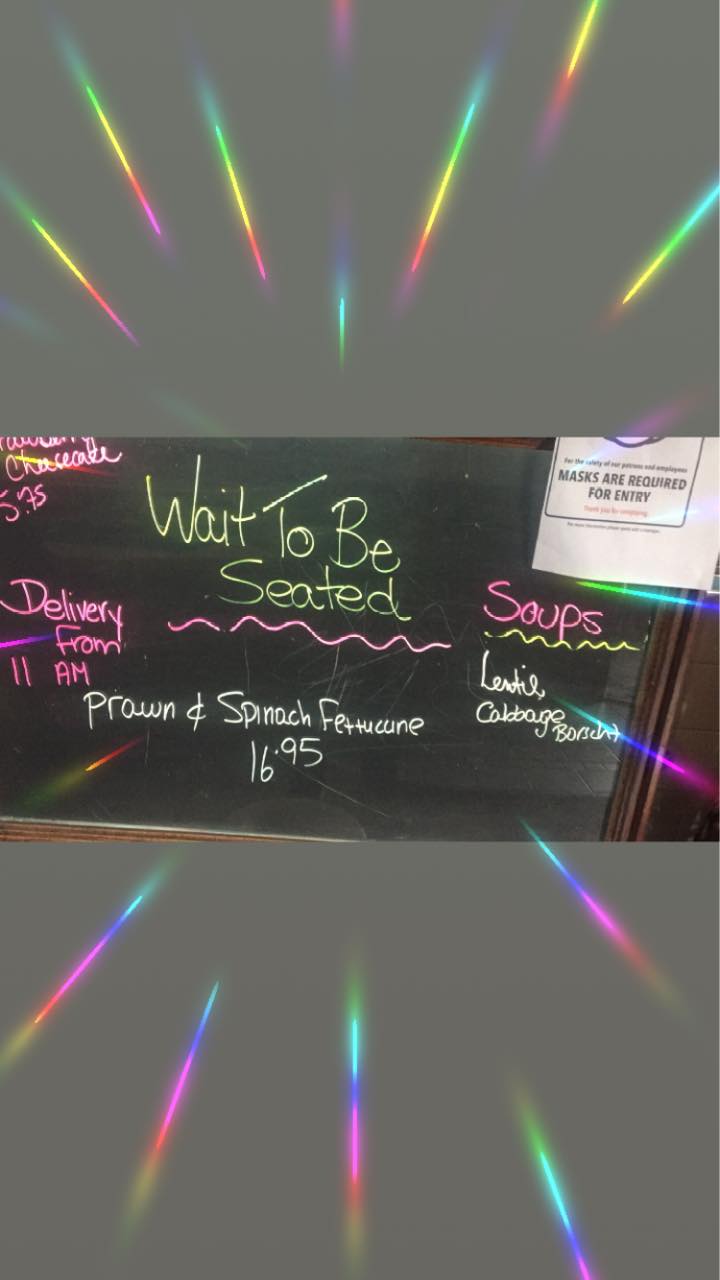 Cheesecake
5.75
Wait To Be
Seated
Delivery
From
11 AM
Prawn & Spinach Fettucune
16.95
Soups
Lentil,
Cabbage
Borscht
For the safety of our patrons and employees
MASKS ARE REQUIRED
FOR ENTRY
Thank you for complying.